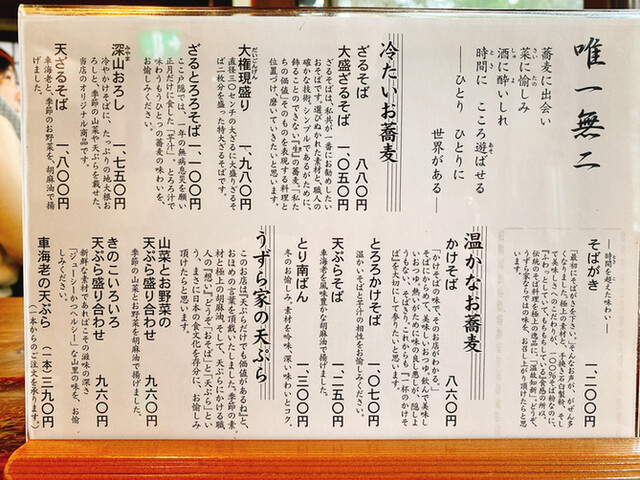 唯一無二
蕎麦に出会い
菜に愉しみ
酒に酔いしれ
時間に こころ遊ばせる
―ひとり ひとりに
世界がある―
冷たいお蕎麦
ざるそば 八八〇円
大盛ざるそば 一、〇五〇円
ざるそばは、私共が一番にお勧めしたい
おそばです。選びぬかれた素材と、職人の
確かな技術。シンプルであるがために、
飾ることのできない『生』の蕎麦。「私た
ちの価値」そのものを表現する料理と
位置づけ、磨いていきたいと思います。
大権現盛り 一、九八〇円
直径三〇センチの大ざるに大盛りざるそ
ば二枚分を盛った特大ざるそばです。
ざるとろろそば 一、一〇〇円
ここみ隠しでは、一年の無病息災を願い
正月明けに食した「芋汁」。とろろ汁で
味わうもうひとつの蕎麦の味わいを、
お愉しみください。
深山おろし 一、七五〇円
冷やかけそばに、たっぷりの地大根お
ろしと、季節の山菜や天ぷらを載せた、
当店のオリジナル商品です。
天ざるそば 一、八〇〇円
車海老と、季節のお野菜を、胡麻油で揚
げました。
―時間を超えた味わい―
そばがき 一、二〇〇円
温かなお蕎麦
かけそば 八六〇円
「かけそばの味で、そのお店がわかる。」
そばにからめて、美味しいおつゆ。飲んで美味し
いおつゆ。熱いがために味の良し悪しが、隠しよ
うもない、そばと汁。これからも「一杯のかけそ
ば」を大切にして参りたいと思います。
とろろかけそば 一、〇七〇円
温かいそばと芋汁の相性をお愉しみください。
天ぷらそば 一、二五〇円
車海老を風味豊かな胡麻油で揚げました。
とり南ばん 一、三〇〇円
冬のお愉しみ。素材を吟味、深い味わいとコク。
うずら家の天ぷら
このお店は「天ぷらだけでも価値があるね」と、
おほめの言葉を頂戴いたしました。季節の素
材と極上の胡麻油、そして、天ぷらにかける職
人の『想い』どうぞ「おそば」と「天ぷら」とい
う、まさに日本の食文化を存分に、お愉しみ
頂けたらと思います。
山菜とお野菜の
天ぷら盛り合わせ 九六〇円
季節の山菜とお野菜を胡麻油で揚げました。
きのこいろいろ
天ぷら盛り合わせ 九六〇円
新鮮な素材であればこその滋味の深さ
「ジューシーかつヘルシー」な山里の味を、お愉
しみください。
車海老の天ぷら (一本)三九〇円
(一本からのご注文を承ります。)